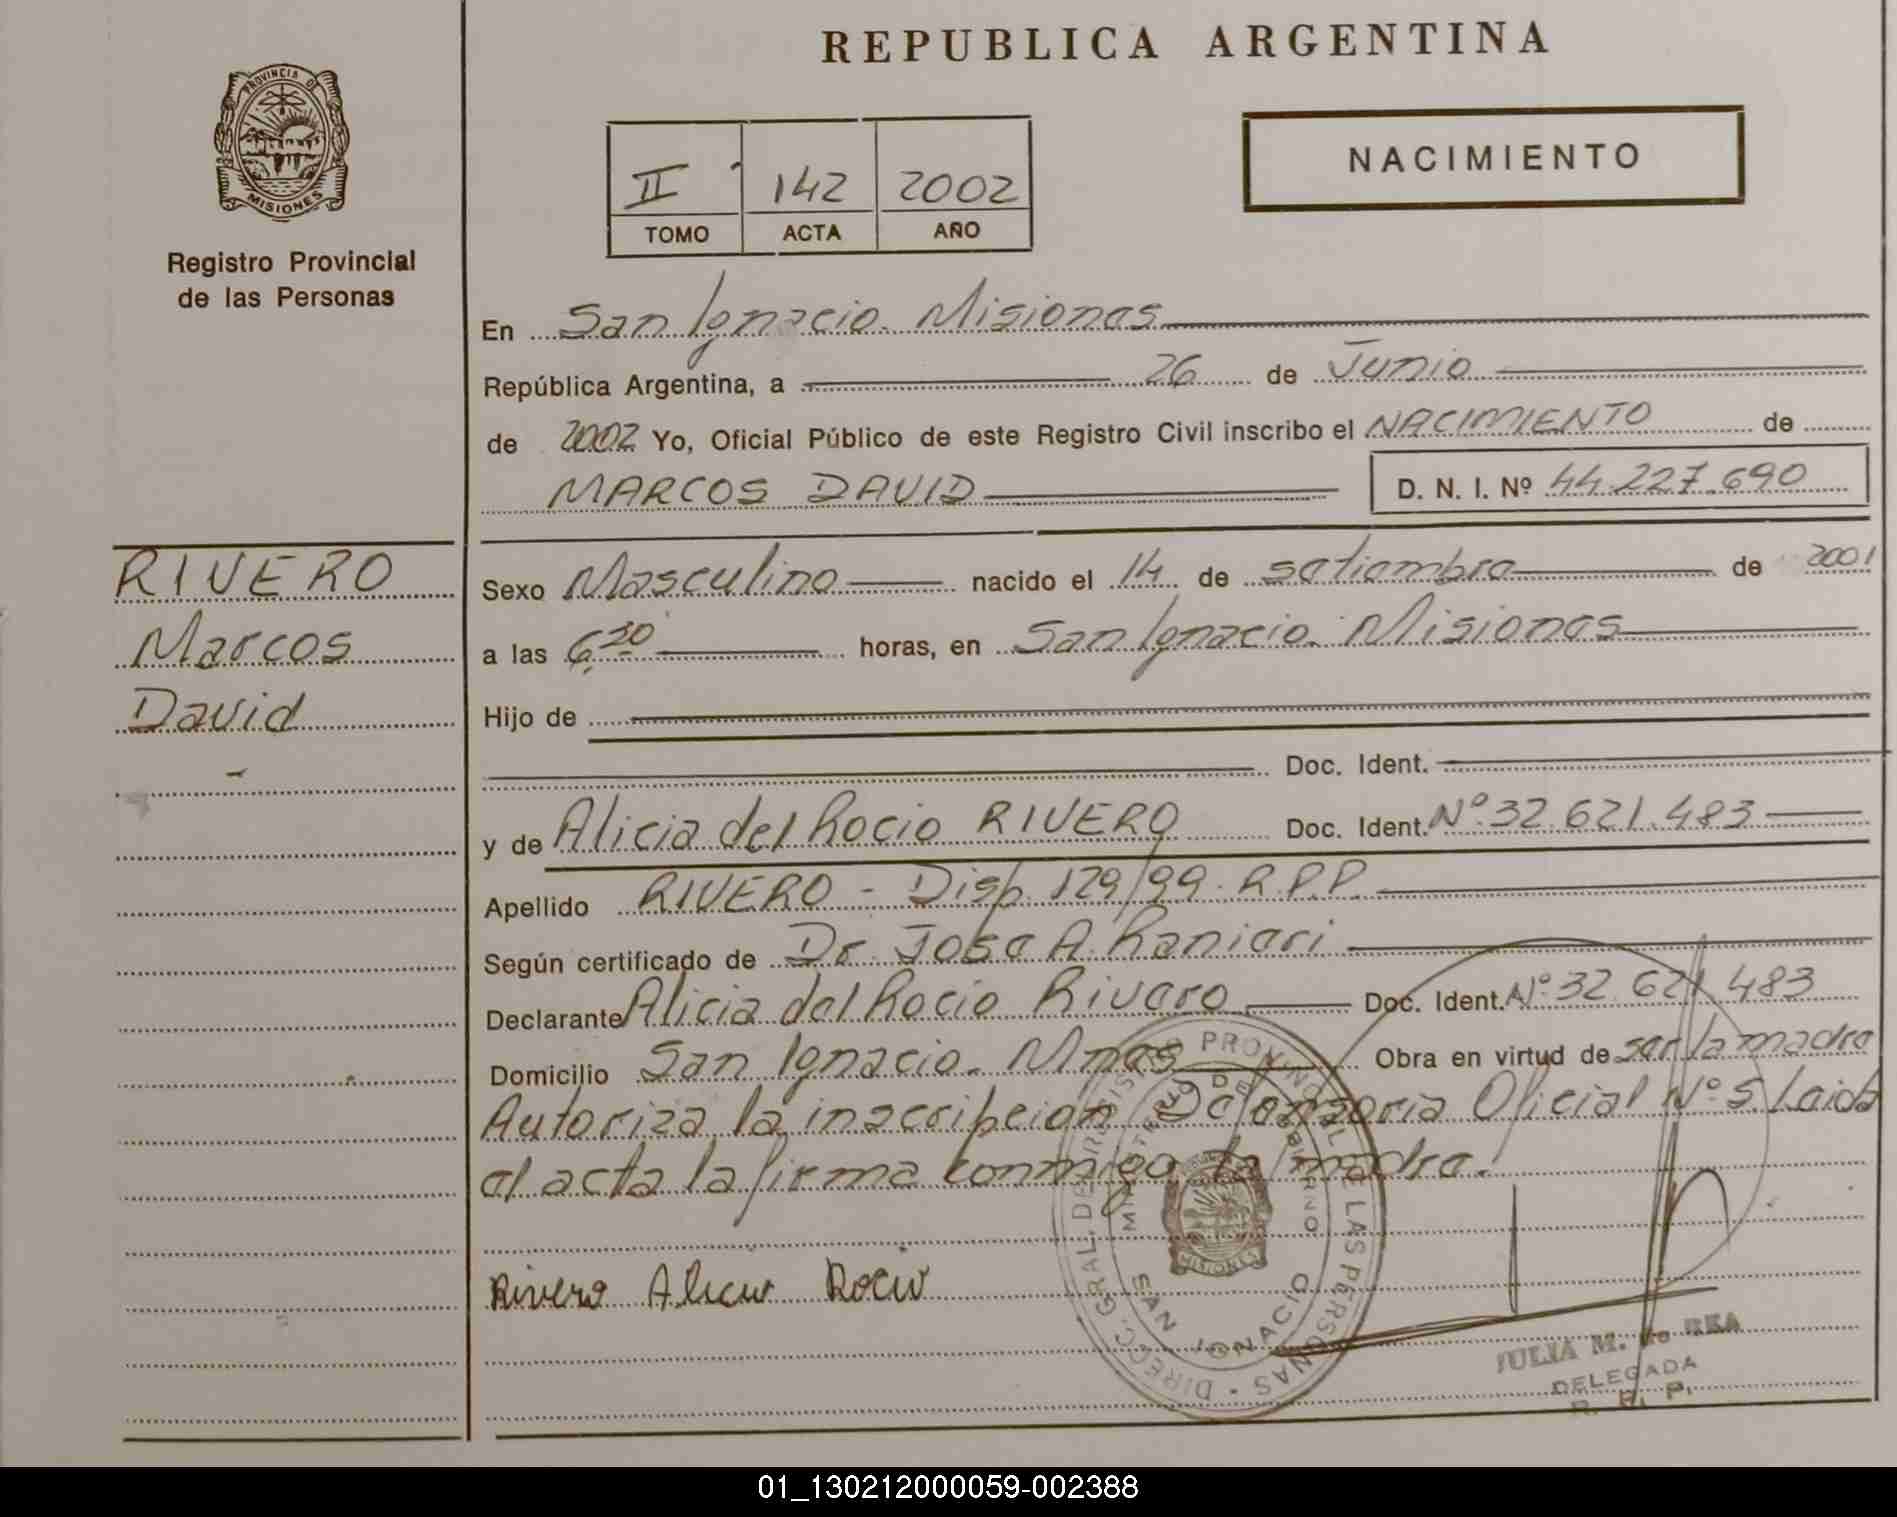 REPUBLICA ARGENTINA
PROVINCIA DE
MISIONES
Registro Provincial
de las Personas
NACIMIENTO
II 142 2002
TOMO ACTA AÑO
En San Ignacio. Misiones
República Argentina, a 26 de Junio
de 2002 Yo, Oficial Público de este Registro Civil inscribo el NACIMIENTO de
MARCOS DAVID D. N. I. Nº 44.227.690
RIVERO
Marcos
David
Sexo Masculino nacido el 14 de setiembre de 2001
a las 6,30 horas, en San Ignacio. Misiones
Hijo de
Doc. Ident.
y de Alicia del Rocio RIVERO Doc. Ident. Nº 32.621.483
Apellido RIVERO - Disp. 129/99. R.P.P.
Según certificado de Dr. Jose A. Ranieri
Declarante Alicia del Rocio Rivero Doc. Ident. Nº 32.621.483
Domicilio San Ignacio. Mnes Obra en virtud de ser la madre
Autoriza la inscripcion Defensoria Oficial Nº 5. Leida
el acta la firma conmigo la madre.
Rivero Alicia Rocio
DIRECC. GRAL. DEL REGISTRO PROVINCIAL DE LAS PERSONAS
MINISTERIO DE GOBIERNO
MISIONES
SAN IGNACIO
JULIA M. de REA
DELEGADA
R. P. P.
01_130212000059-002388